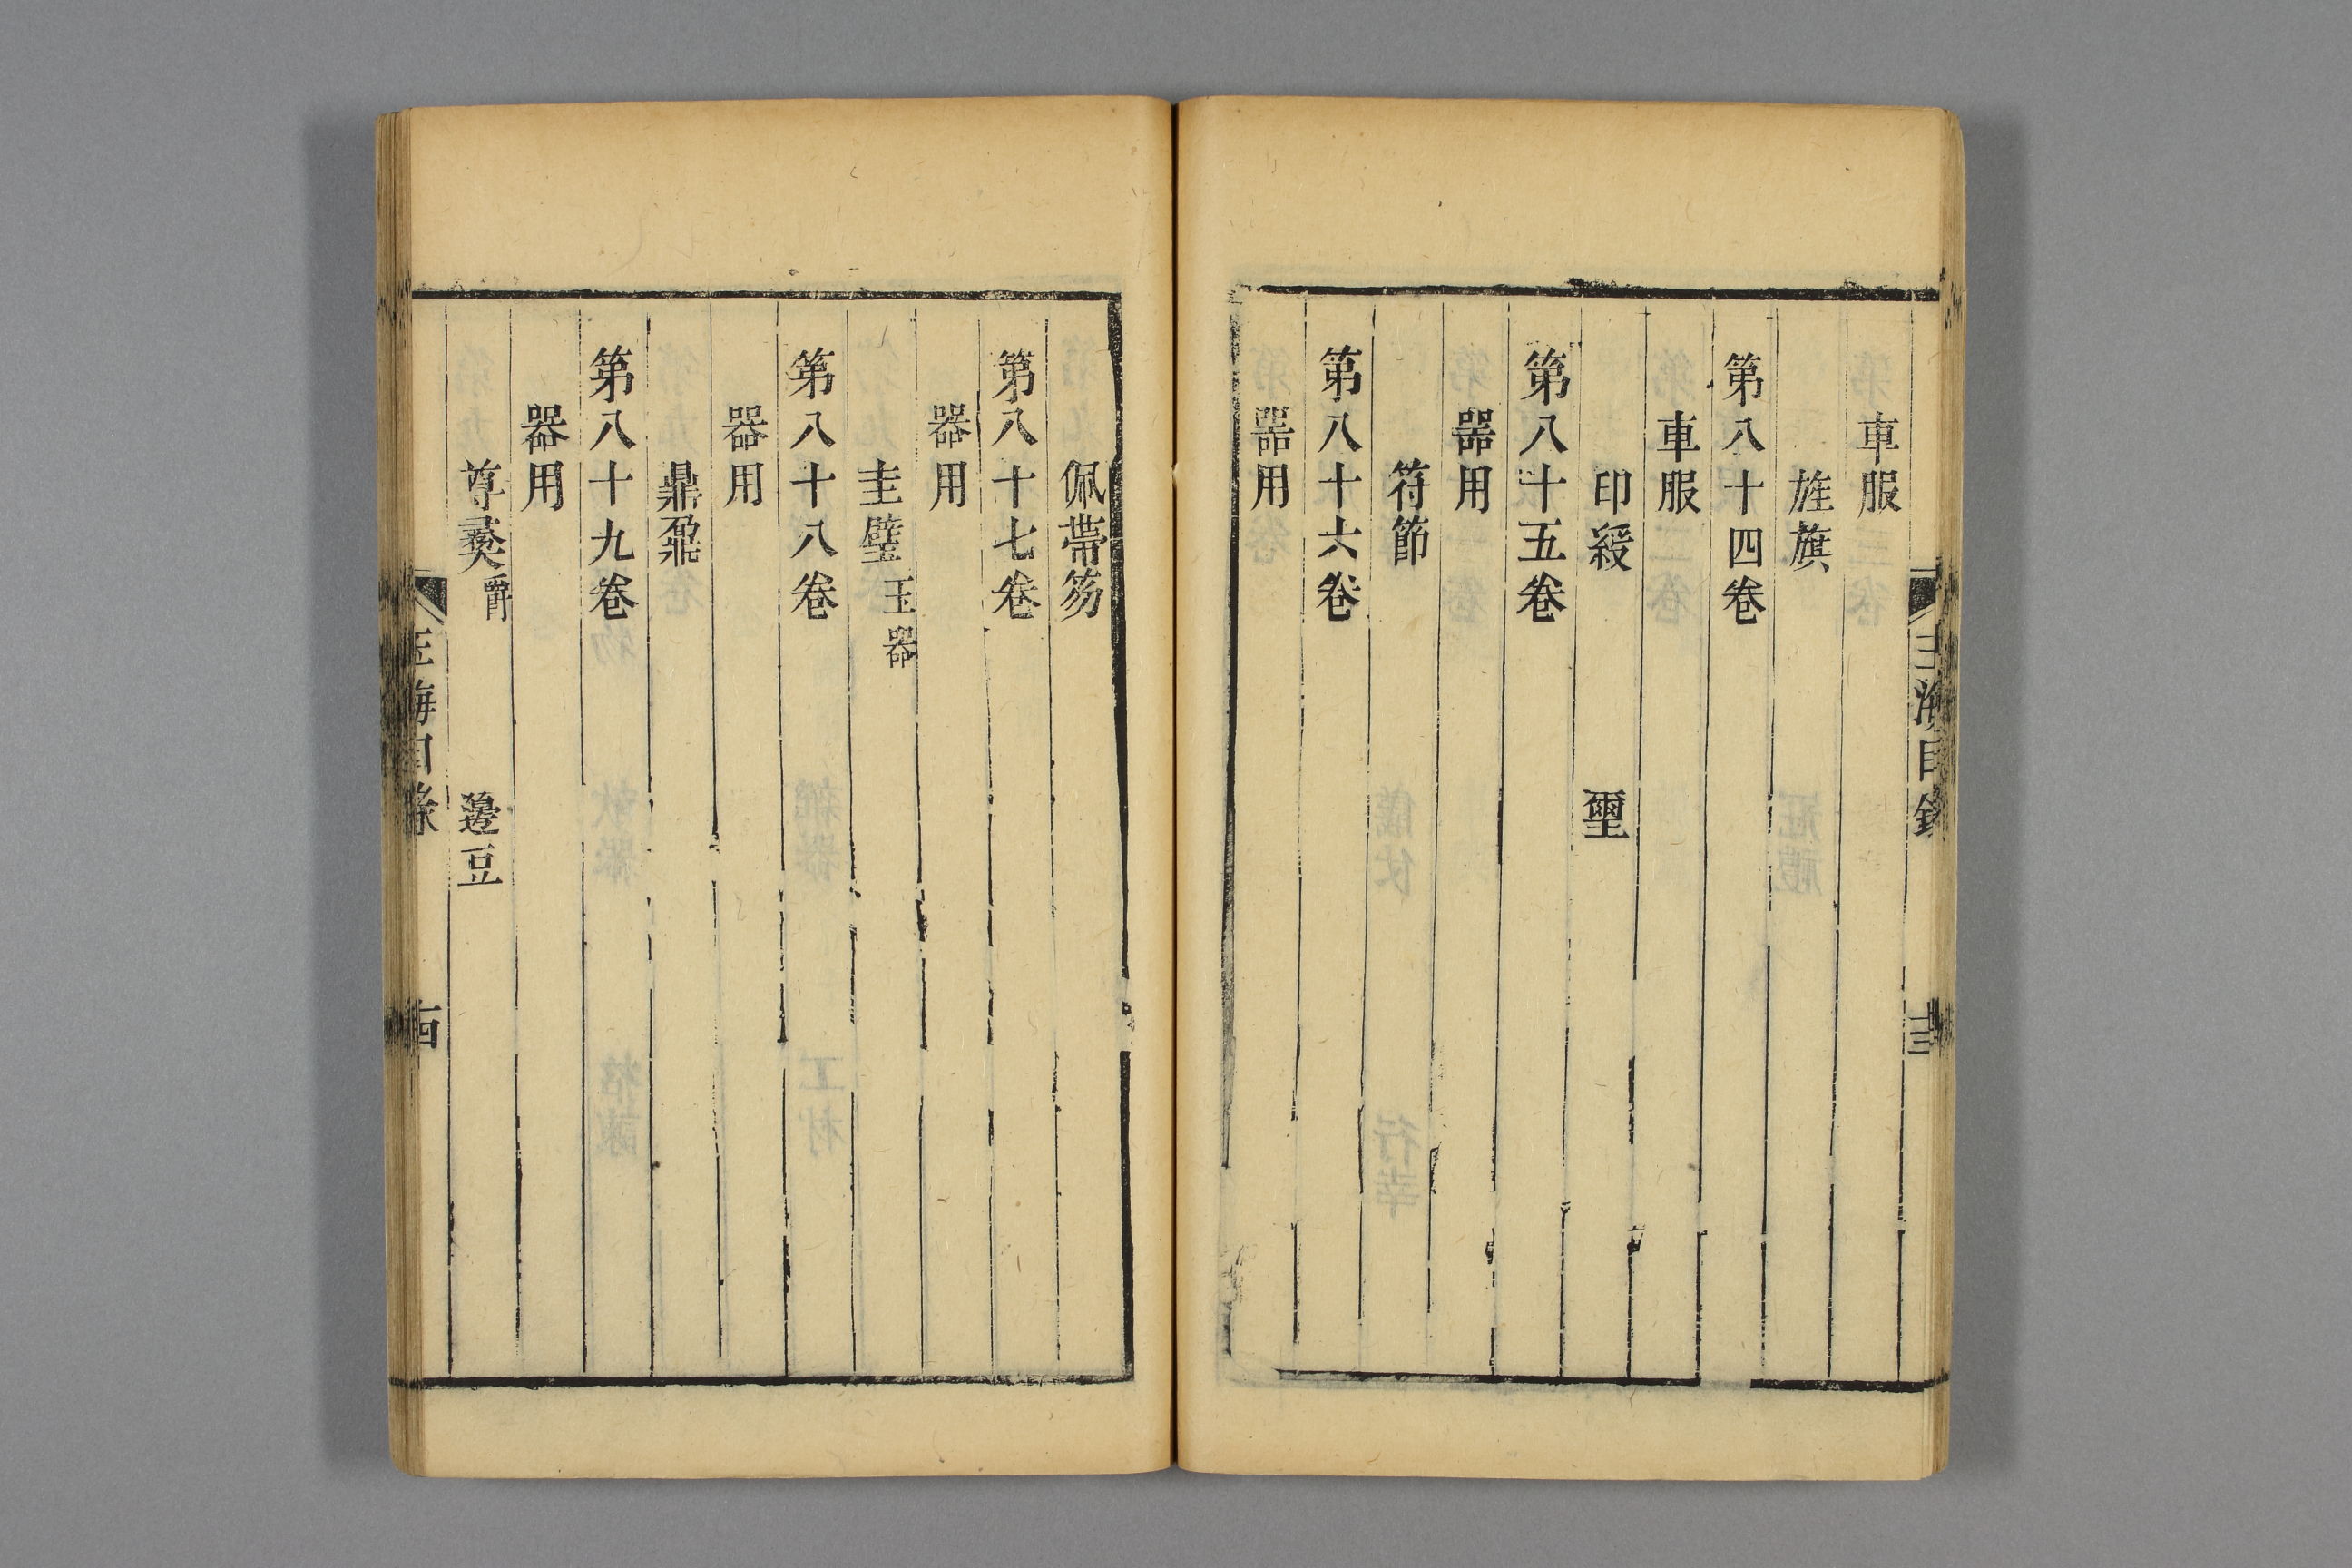 車服
旌旗
第八十四卷
車服
印綬 璽
第八十五卷
器用
符節
第八十六卷
器用
玉海目錄 十三
佩帶笏
第八十七卷
器用
圭璧玉器
第八十八卷
器用
鼎鼐
第八十九卷
器用
尊彝爵 籩豆
玉海目錄